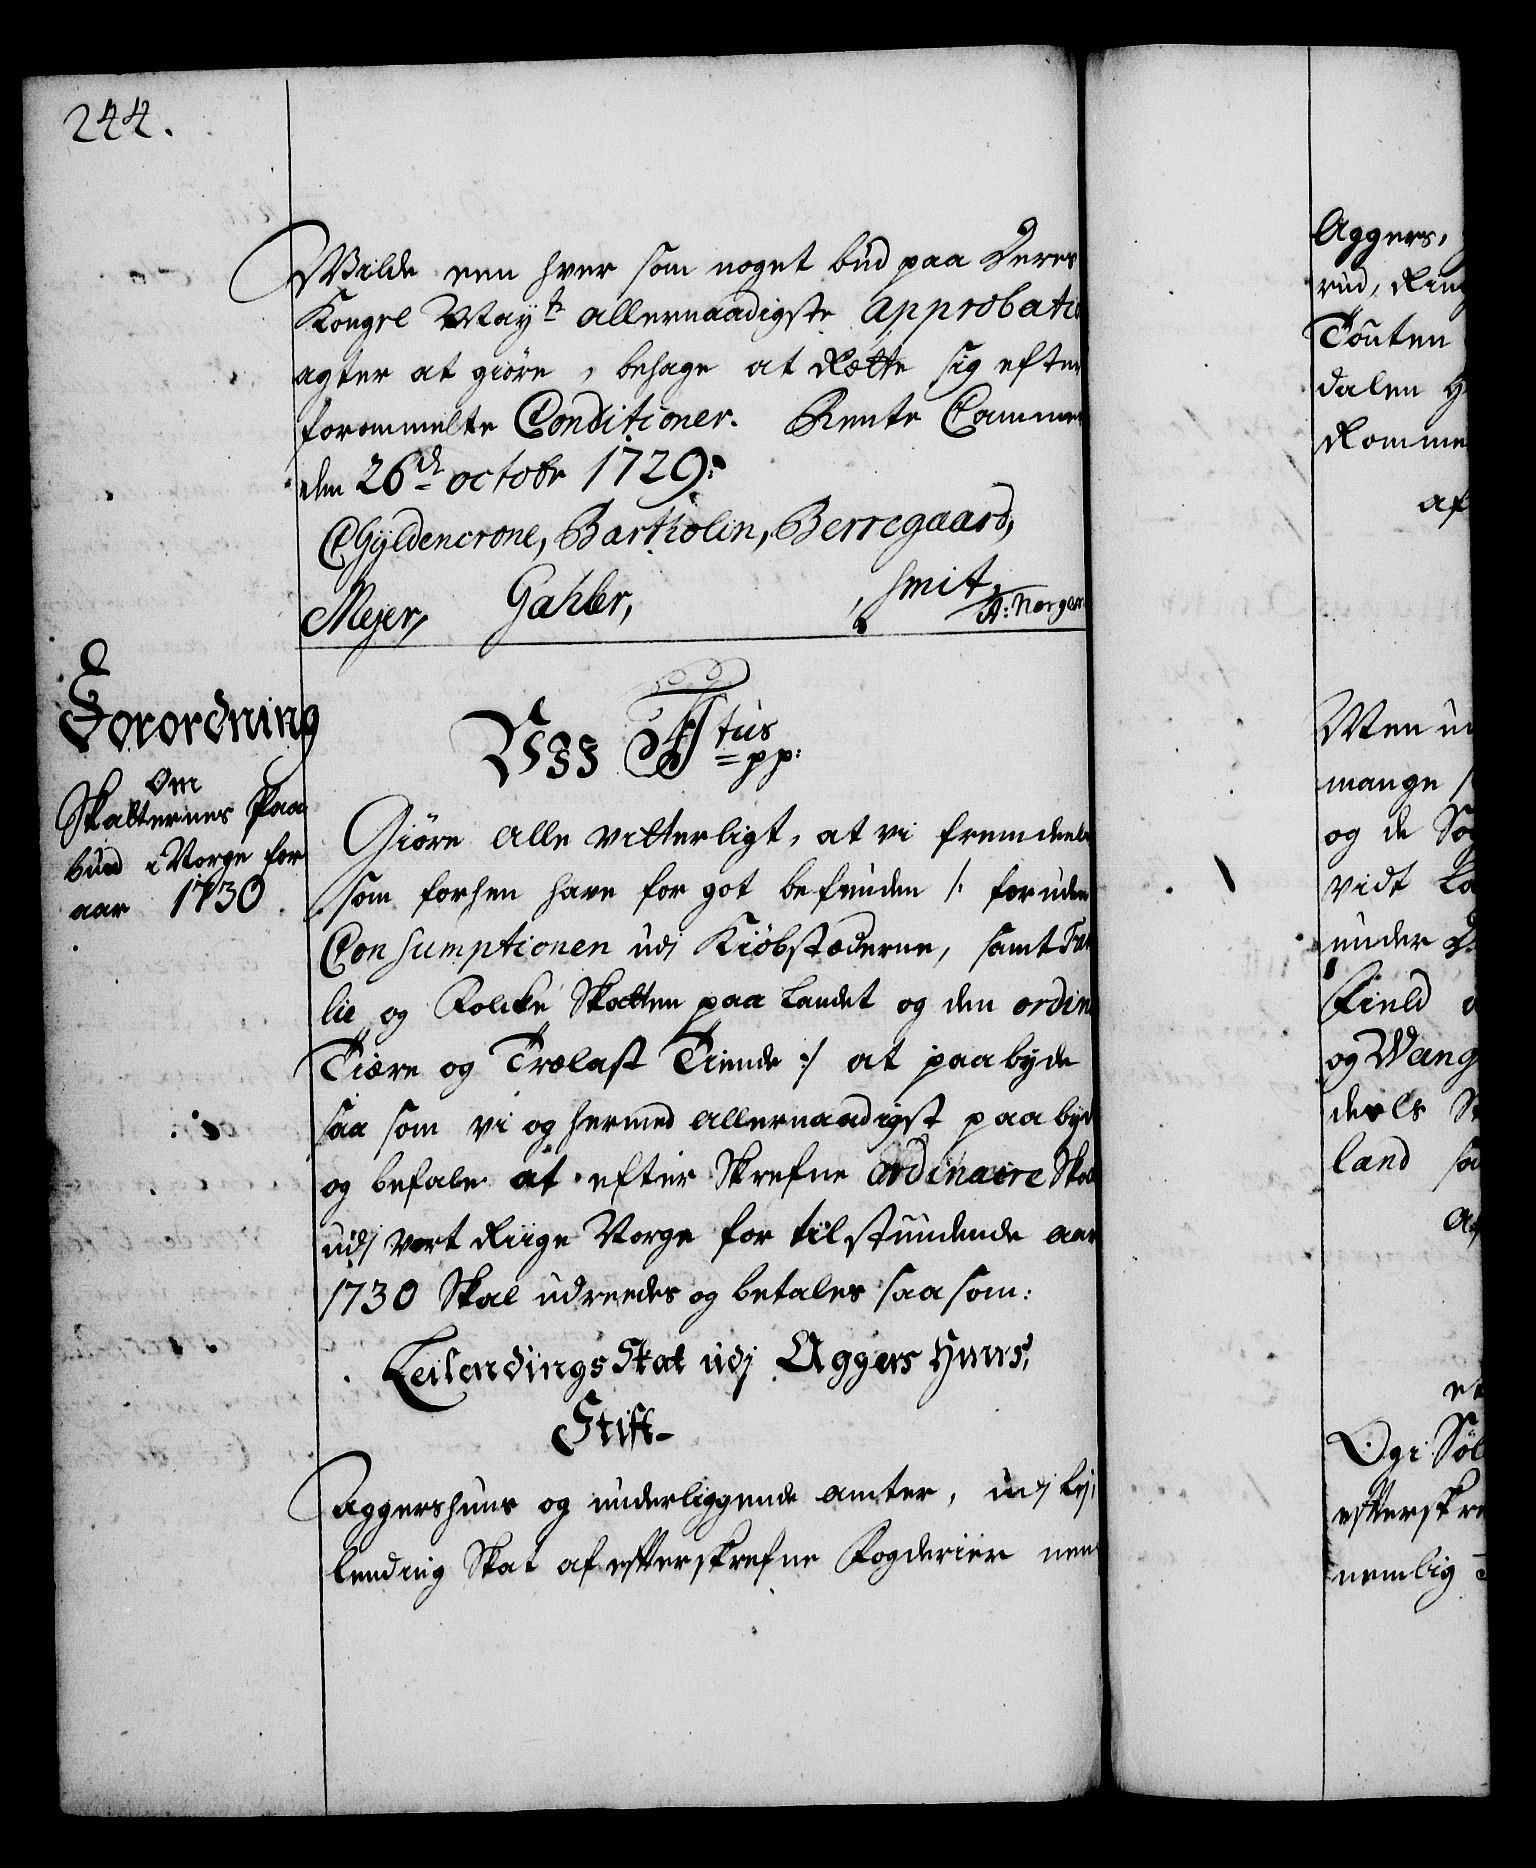 244.
Wilde een hver som noget bud paa Deres
Kongel Mayts allernaadigste approbatio
agter at giøre, behage at Rætte sig efter
forommelte Conditioner. Rente Cammer
den 26de octobr 1729:
CHGyldencrone, Bartholin, Berregaard,
Meyer, Gahler, Smit,
Forordning
Om
Skatternes Paa
bud i Norge for
aar 1730
Giøre alle vitterligt, at vi fremdeels
som forhen have for got befunden /: foruden
Consumptionen udj Kiøbstæderne, samt
lie og Folcke Skatten paa Landet og den ordin
Tiære og Trælast Tiende :/ at paabyde
saa som vi og hermed allernaadigst paabyd
og befale at efter Skrefne ordinaire Skat
udj vort Riige Norge for tilstundende aar
1730 Skal udreedes og betales saasom:
Leilendings Skat udj Aggers Huus,
Stift
Aggershuus og underliggende amter, udj Ley
lending Skat af efterskrefne Fogderier nem
Aggers,
rud, Ring
Touten
dalen
Romme
af
Men ud
mange
og de
vidt
under
Field
og Mang
deels
land
Af
Ogi
efterskre
nemlig